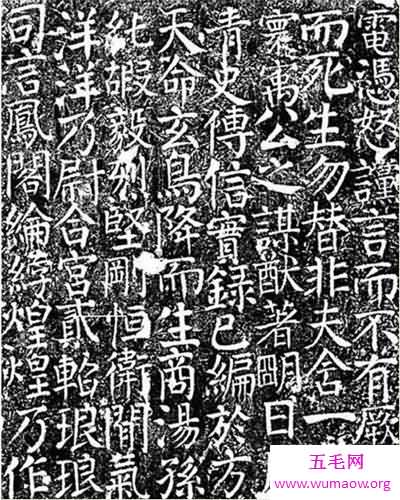 電憑怒讜言而不有厥
而死生勿替非夫含一
寰寓公之謀猷著明日
青史傳信實錄已編於方
天命玄鳥降而生商湯孫
純嘏毅烈堅剛恒衛間氣
洋洋乃尉合宮貳軺琅琅
司言鳳閣綸綍煌煌乃作
五毛网
www.wumaow.org